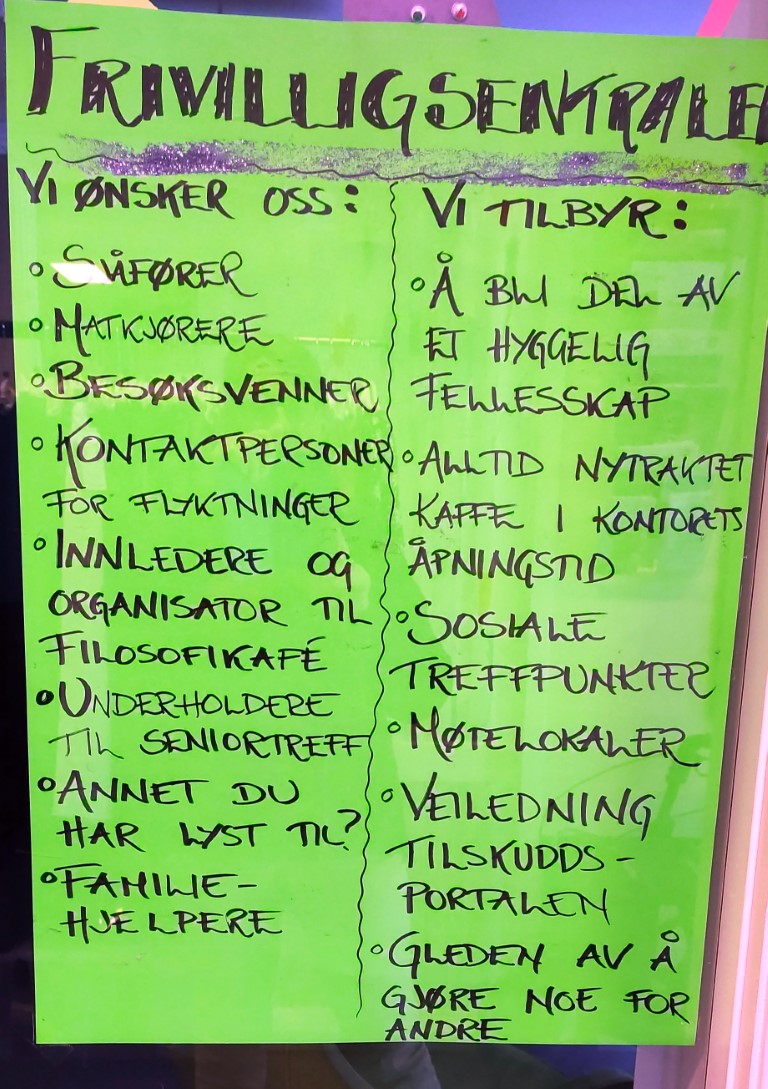 FRIVILLIGSENTRALE
VI ØNSKER OSS:
SJÅFØRER
MATKJØRERE
BESØKSVENNER
KONTAKTPERSONER
FOR FLYKTNINGER
INNLEDERE OG
ORGANISATOR TIL
FILOSOFIKAFÉ
UNDERHOLDERE
TIL SENIORTREFF
ANNET DU
HAR LYST TIL?
FAMILIE-
HJELPERE
VI TILBYR:
Å BLI DEL AV
ET HYGGELIG
FELLESSKAP
ALLTID NYTRAKTET
KAFFE I KONTORETS
ÅPNINGSTID
SOSIALE
TREFFPUNKTER
MØTELOKALER
VEILEDNING
TILSKUDDS-
PORTALEN
GLEDEN AV Å
GJØRE NOE FOR
ANDRE